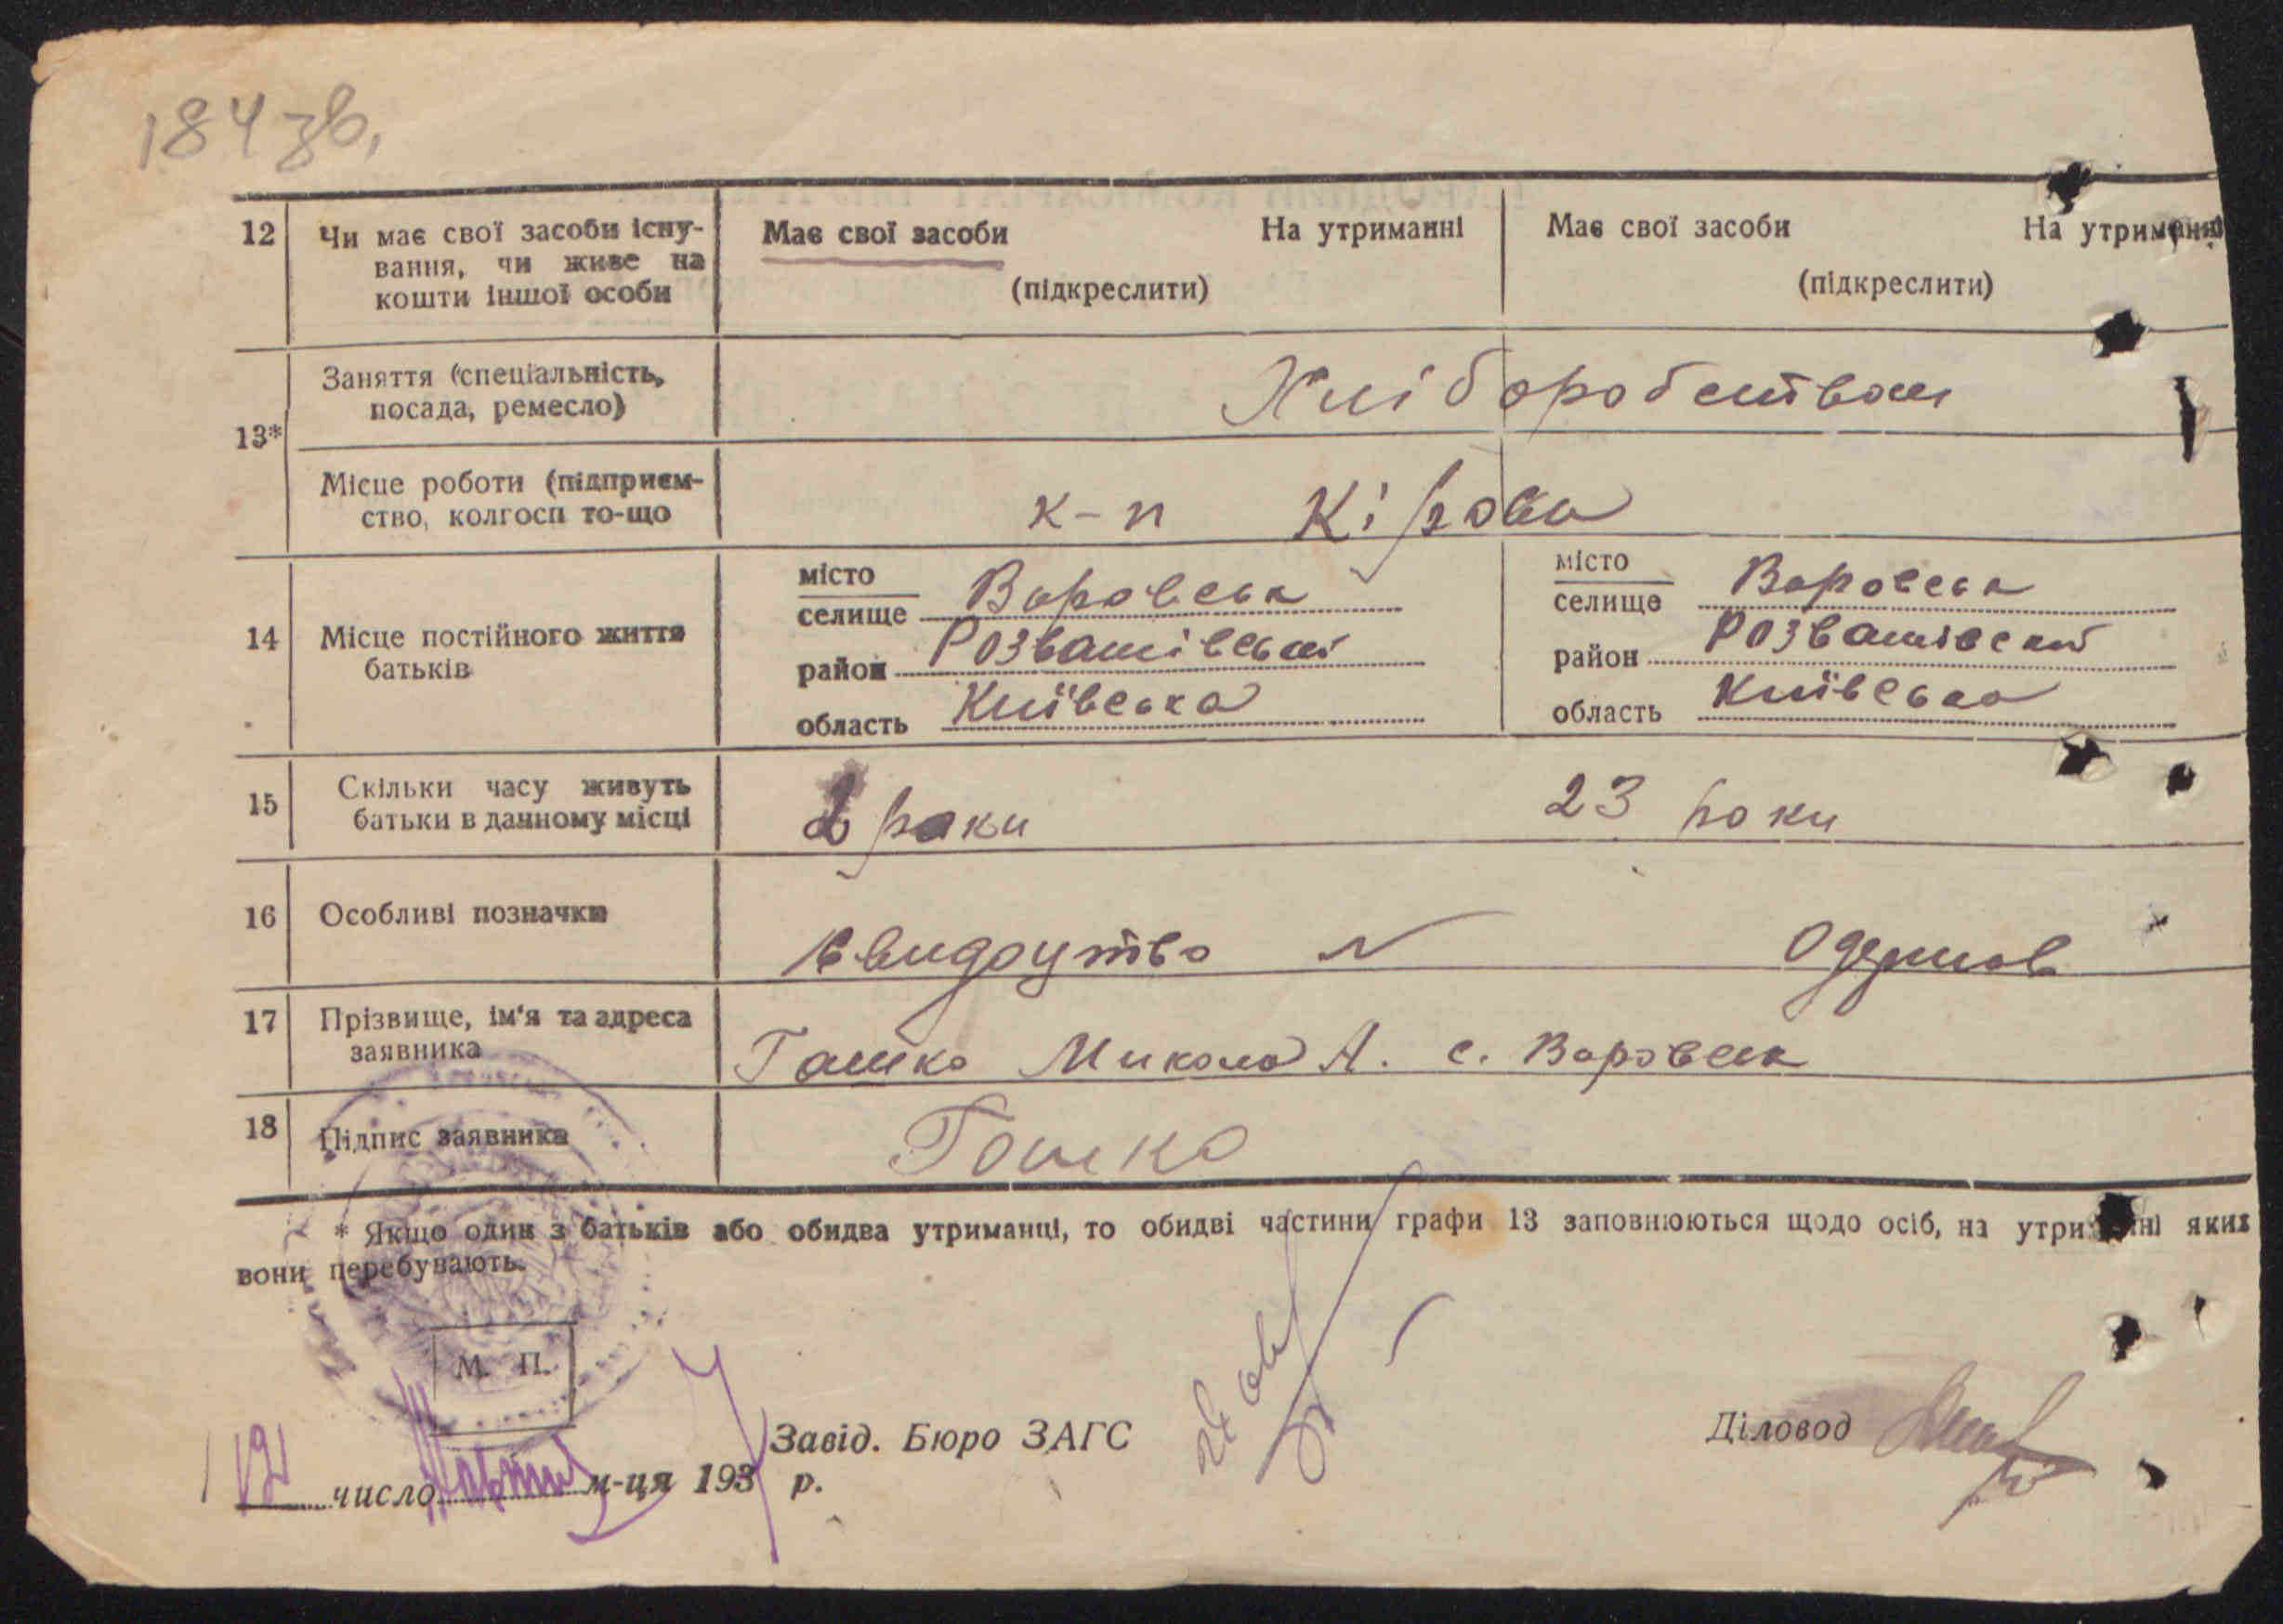 184 зв.
12 Чи має свої засоби існу-
вання, чи живе на
кошти іншої особи
Має свої засоби На утриманні
(підкреслити)
Має свої засоби На утриманні
(підкреслити)
13*
Заняття (спеціальність,
посада, ремесло)
Хліборобством
Місце роботи (підприєм-
ство, колгосп то-що
к-п Кірова
14 Місце постійного життя
батьків
місто
селище Воровськ
район Розважівський
область Київська
місто
селище Воровськ
район Розважівский
область Київська
15 Скільки часу живуть
батьки в данному місці
2 роки 23 роки
16 Особливі позначки
17 Прізвище, ім'я та адреса
заявника
Гошко Микола А. с. Воровськ
18 Підпис заявника
Гошко
* Якщо один з батьків або обидва утриманці, то обидві частини графи 13 заповнюються щодо осіб, на утриманні яких
вони перебувають.
М. П.
Завід. Бюро ЗАГС
Діловод
число Марта м-ця 1937 р.